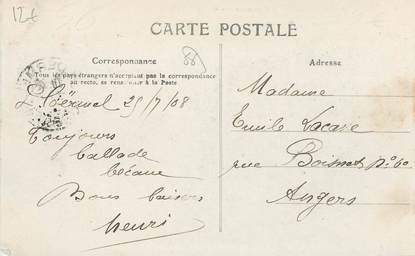 12€
CARTE POSTALE
Correspondance
Tous les pays étrangers n'acceptent pas la correspondance
au recto, se renseigner à la Poste
Ploërmel 29/7/08
Toujours
ballade
bécane
Bons baisers
henri
Adresse
Madame
Emile Lacave
rue Boisnet n° 60
Angers